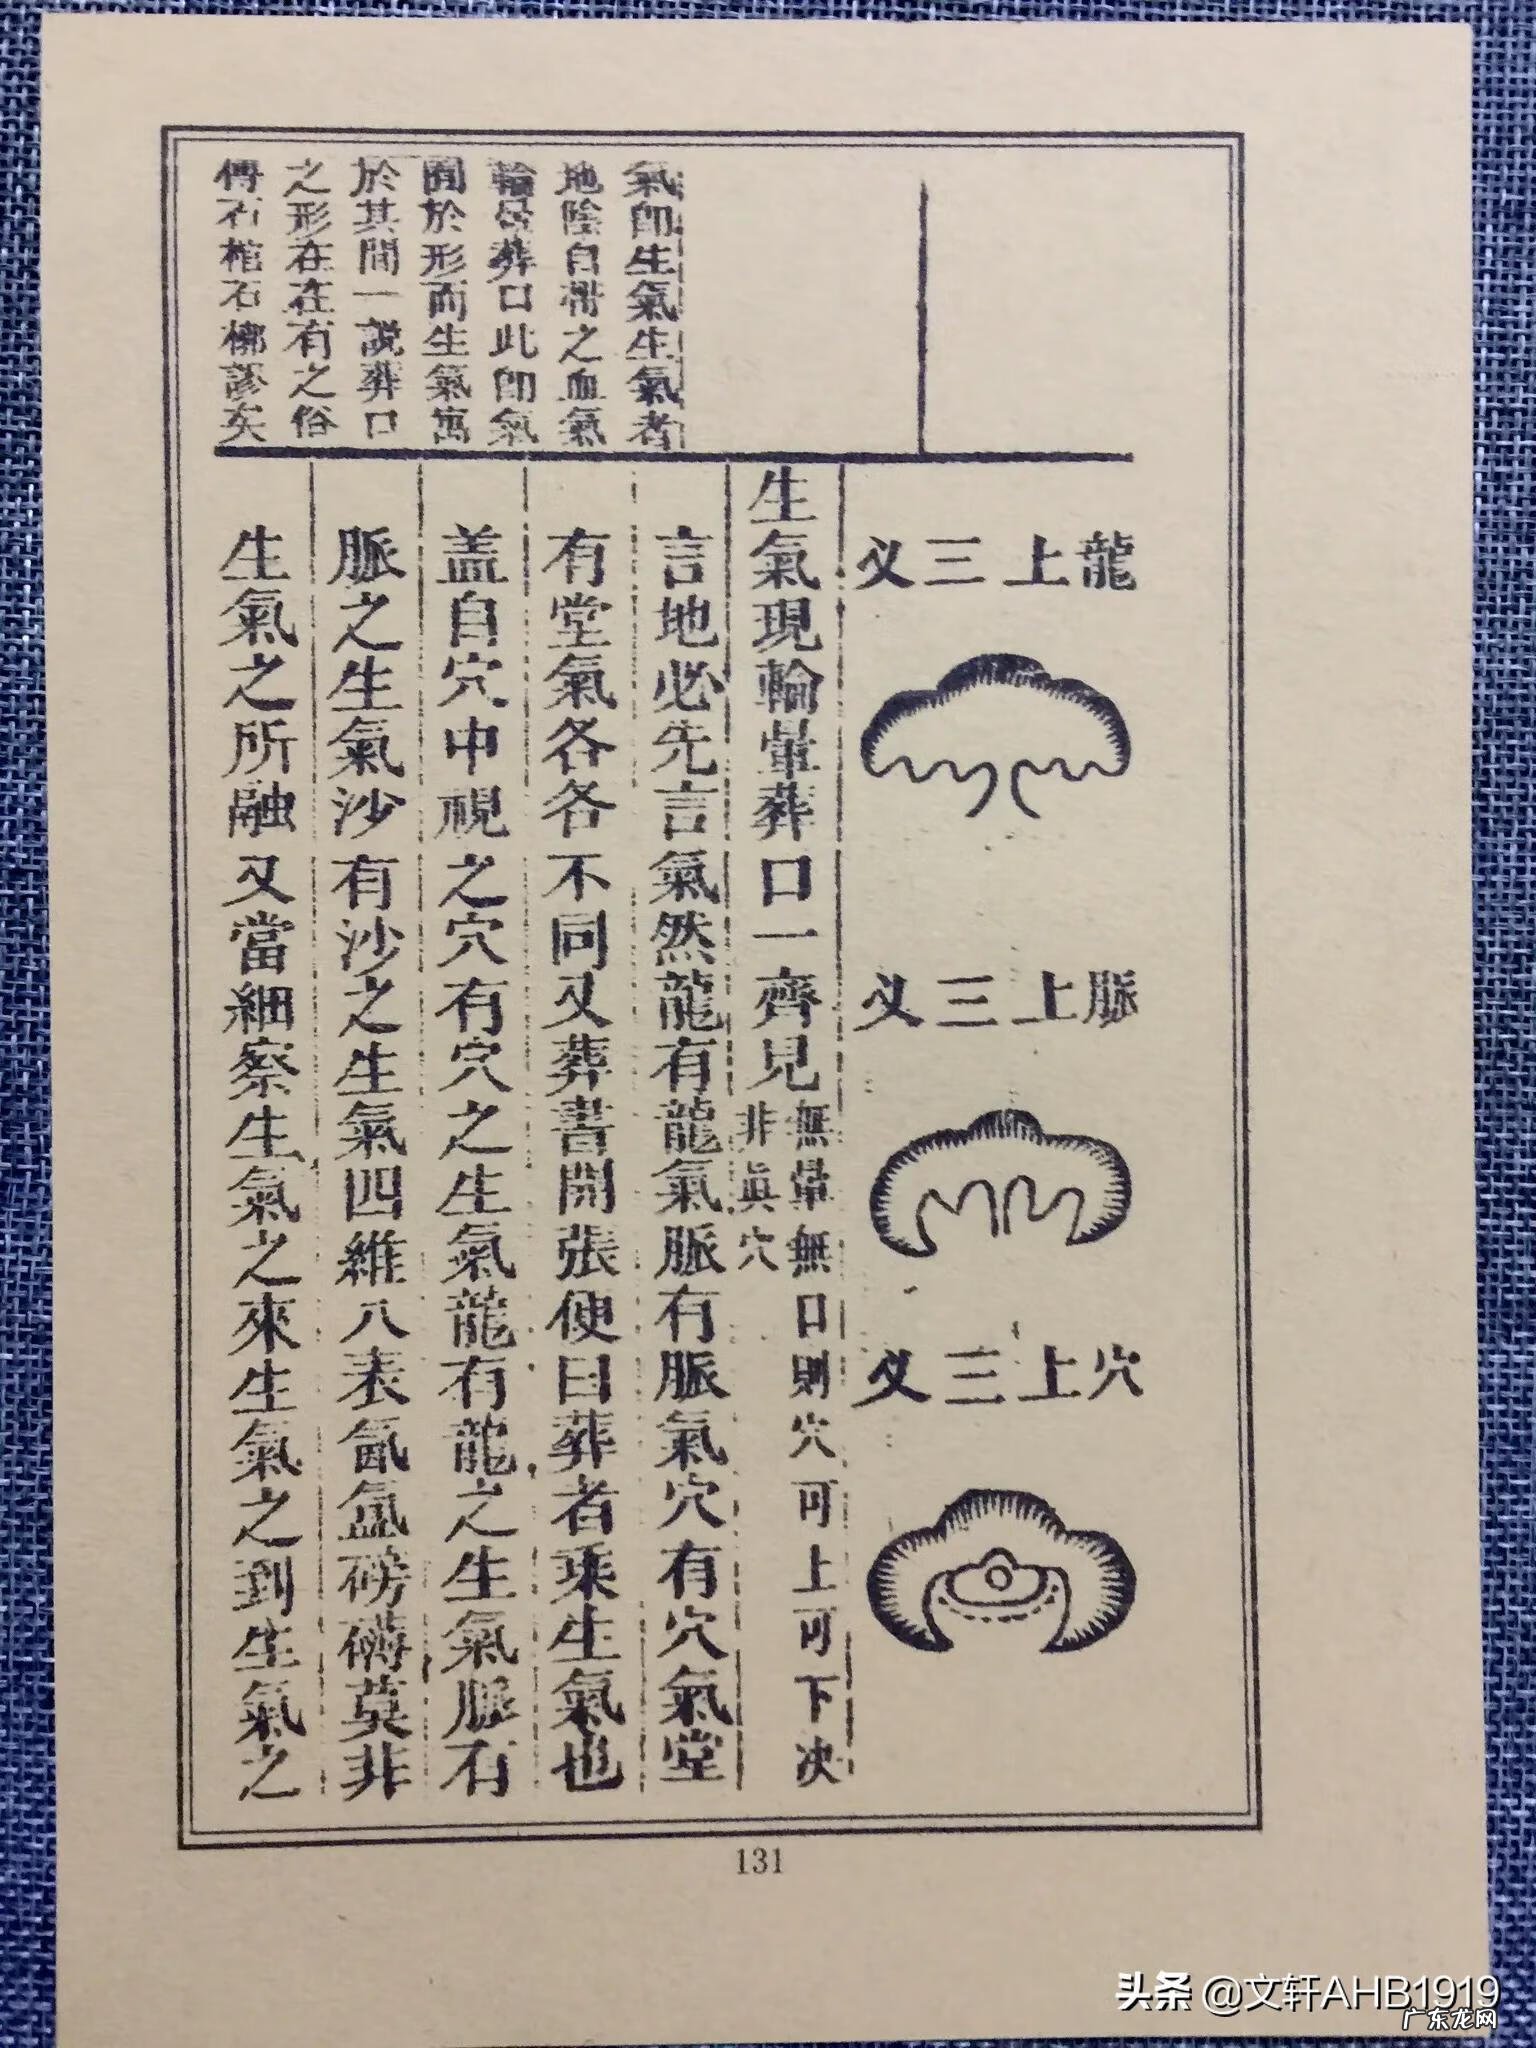 氣卽生氣生氣者
地陰自帶之血氣
輪暈葬口此卽氣
囿於形而生氣寓
於其間一説葬口
之形在在有之俗
傳石棺石槨謬矣
龍上三义
脈上三义
穴上三义
生氣現輪暈葬口一齊見
無暈無口則穴可上可下决
非眞穴
言地必先言氣然龍有龍氣脈有脈氣穴有穴氣堂
有堂氣各各不同又葬書開張便曰葬者乘生氣也
盖自穴中視之穴有穴之生氣龍有龍之生氣脈有
脈之生氣沙有沙之生氣四維八表氤氳磅礴莫非
生氣之所融又當細察生氣之來生氣之到生氣之
131
头条 @文轩AHB1919
广东龙网